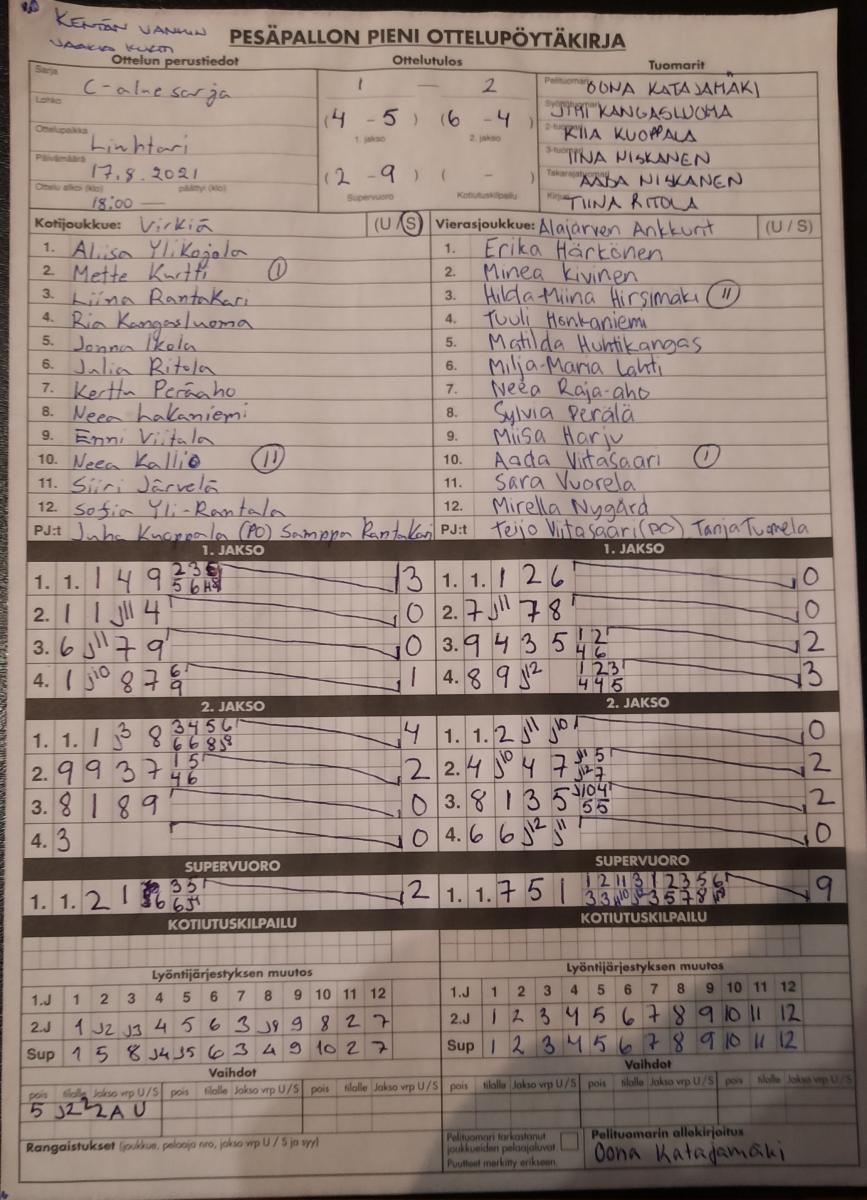 KENTÄN VANHIN
JAAKKO KURTTI
PESÄPALLON PIENI OTTELUPÖYTÄKIRJA
Ottelun perustiedot Ottelutulos Tuomarit
Sarja C-aluesarja 1 – 2 Pelituomari OONA KATAJAMÄKI
Lohko (4 - 5) (6 - 4) JIMI KANGASLUOMA
1. jakso 2. jakso KIIA KUOPPALA
Ottelupaikka Liuhtari 3-tuomari IINA NISKANEN
Päivämäärä 17.8.2021 (2 - 9) ( - ) Takarajatuomari AADA NISKANEN
Ottelu alkoi (klo) 18:00 — päättyi (klo) Supervuoro Kotiutuskilpailu TIINA RITOLA
Kotijoukkue: Virkiä (U/S) Vierasjoukkue: Alajärven Ankkurit (U / S)
1. Aliisa Ylikojola 1. Erika Härkönen
2. Mette Kurtti I 2. Minea Kivinen
3. Liina Rantakari 3. Hilda-Miina Hirsimäki II
4. Ria Kangasluoma 4. Tuuli Honkaniemi
5. Jonna Ikola 5. Matilda Huhtikangas
6. Julia Ritola 6. Milja-Maria Lahti
7. Kerttu Peräaho 7. Neea Raja-aho
8. Neea Lakaniemi 8. Sylvia Perälä
9. Enni Viitala 9. Miisa Harju
10. Neea Kallio II 10. Aada Viitasaari I
11. Siiri Järvelä 11. Sara Vuorela
12. Sofia Yli-Rantala 12. Mirella Nygård
PJ:t Juha Kuoppala (PO) Samppa Rantakari PJ:t Teijo Viitasaari (PO) Tanja Tuomela
1. JAKSO 1. JAKSO
1. 1. 1 4 9 2 3 5 6 3 1. 1. 1 2 6 0
2. 1 1 J11 4 0 2. 7 J11 7 8 0
3. 6 J11 7 9 0 3. 9 4 3 5 1 2 4 6 2
4. 1 J10 8 7 6 9 1 4. 8 9 J12 1 2 3 4 4 5 3
2. JAKSO 2. JAKSO
1. 1. 1 J3 8 3 4 5 6 6 6 8 J8 4 1. 1. 2 J11 J10 0
2. 9 9 3 7 1 5 4 6 2 2. 4 J10 4 7 J11 5 J12 7 2
3. 8 1 8 9 0 3. 8 1 3 5 J10 4 5 5 2
4. 3 0 4. 6 6 J12 J11 0
SUPERVUORO SUPERVUORO
1. 1. 2 1 6 3 3 6 2 1. 1. 7 5 1 1 2 11 3 1 2 3 5 6 3 3 J10 J12 3 5 7 8 9
KOTIUTUSKILPAILU KOTIUTUSKILPAILU
Lyöntijärjestyksen muutos Lyöntijärjestyksen muutos
1.J 1 2 3 4 5 6 7 8 9 10 11 12 1.J 1 2 3 4 5 6 7 8 9 10 11 12
2.J 1 J2 J3 4 5 6 3 J9 9 8 2 7 2.J 1 2 3 4 5 6 7 8 9 10 11 12
Sup 1 5 8 J4 J5 6 3 4 9 10 2 7 Sup 1 2 3 4 5 6 7 8 9 10 11 12
Vaihdot Vaihdot
pois tilalle Jakso vrp U/S pois tilalle Jakso vrp U/S pois tilalle Jakso vrp U/S pois tilalle Jakso vrp U/S pois tilalle Jakso vrp U/S pois tilalle Jakso vrp U/S
5 J2 2A U
Rangaistukset (joukkue, pelaaja nro, jakso vrp U / S ja syy) Pelituomari tarkastanut joukkueiden pelaajaluvat Pelituomarin allekirjoitus
Puutteet merkitty erikseen. Oona Katajamäki